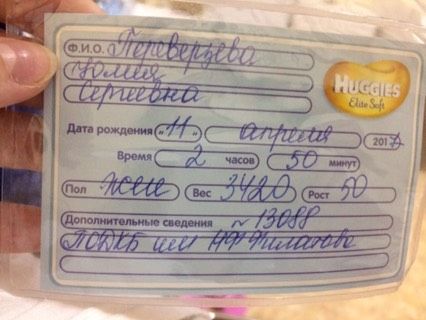 Ф.И.О. Переверзева
Юлия
Сергеевна
HUGGIES
Elite Soft
Дата рождения « 11 » апреля 2017
Время 2 часов 50 минут
Пол жен Вес 3420 Рост 50
Дополнительные сведения № 13088
ПОДКБ им НФ Филатова